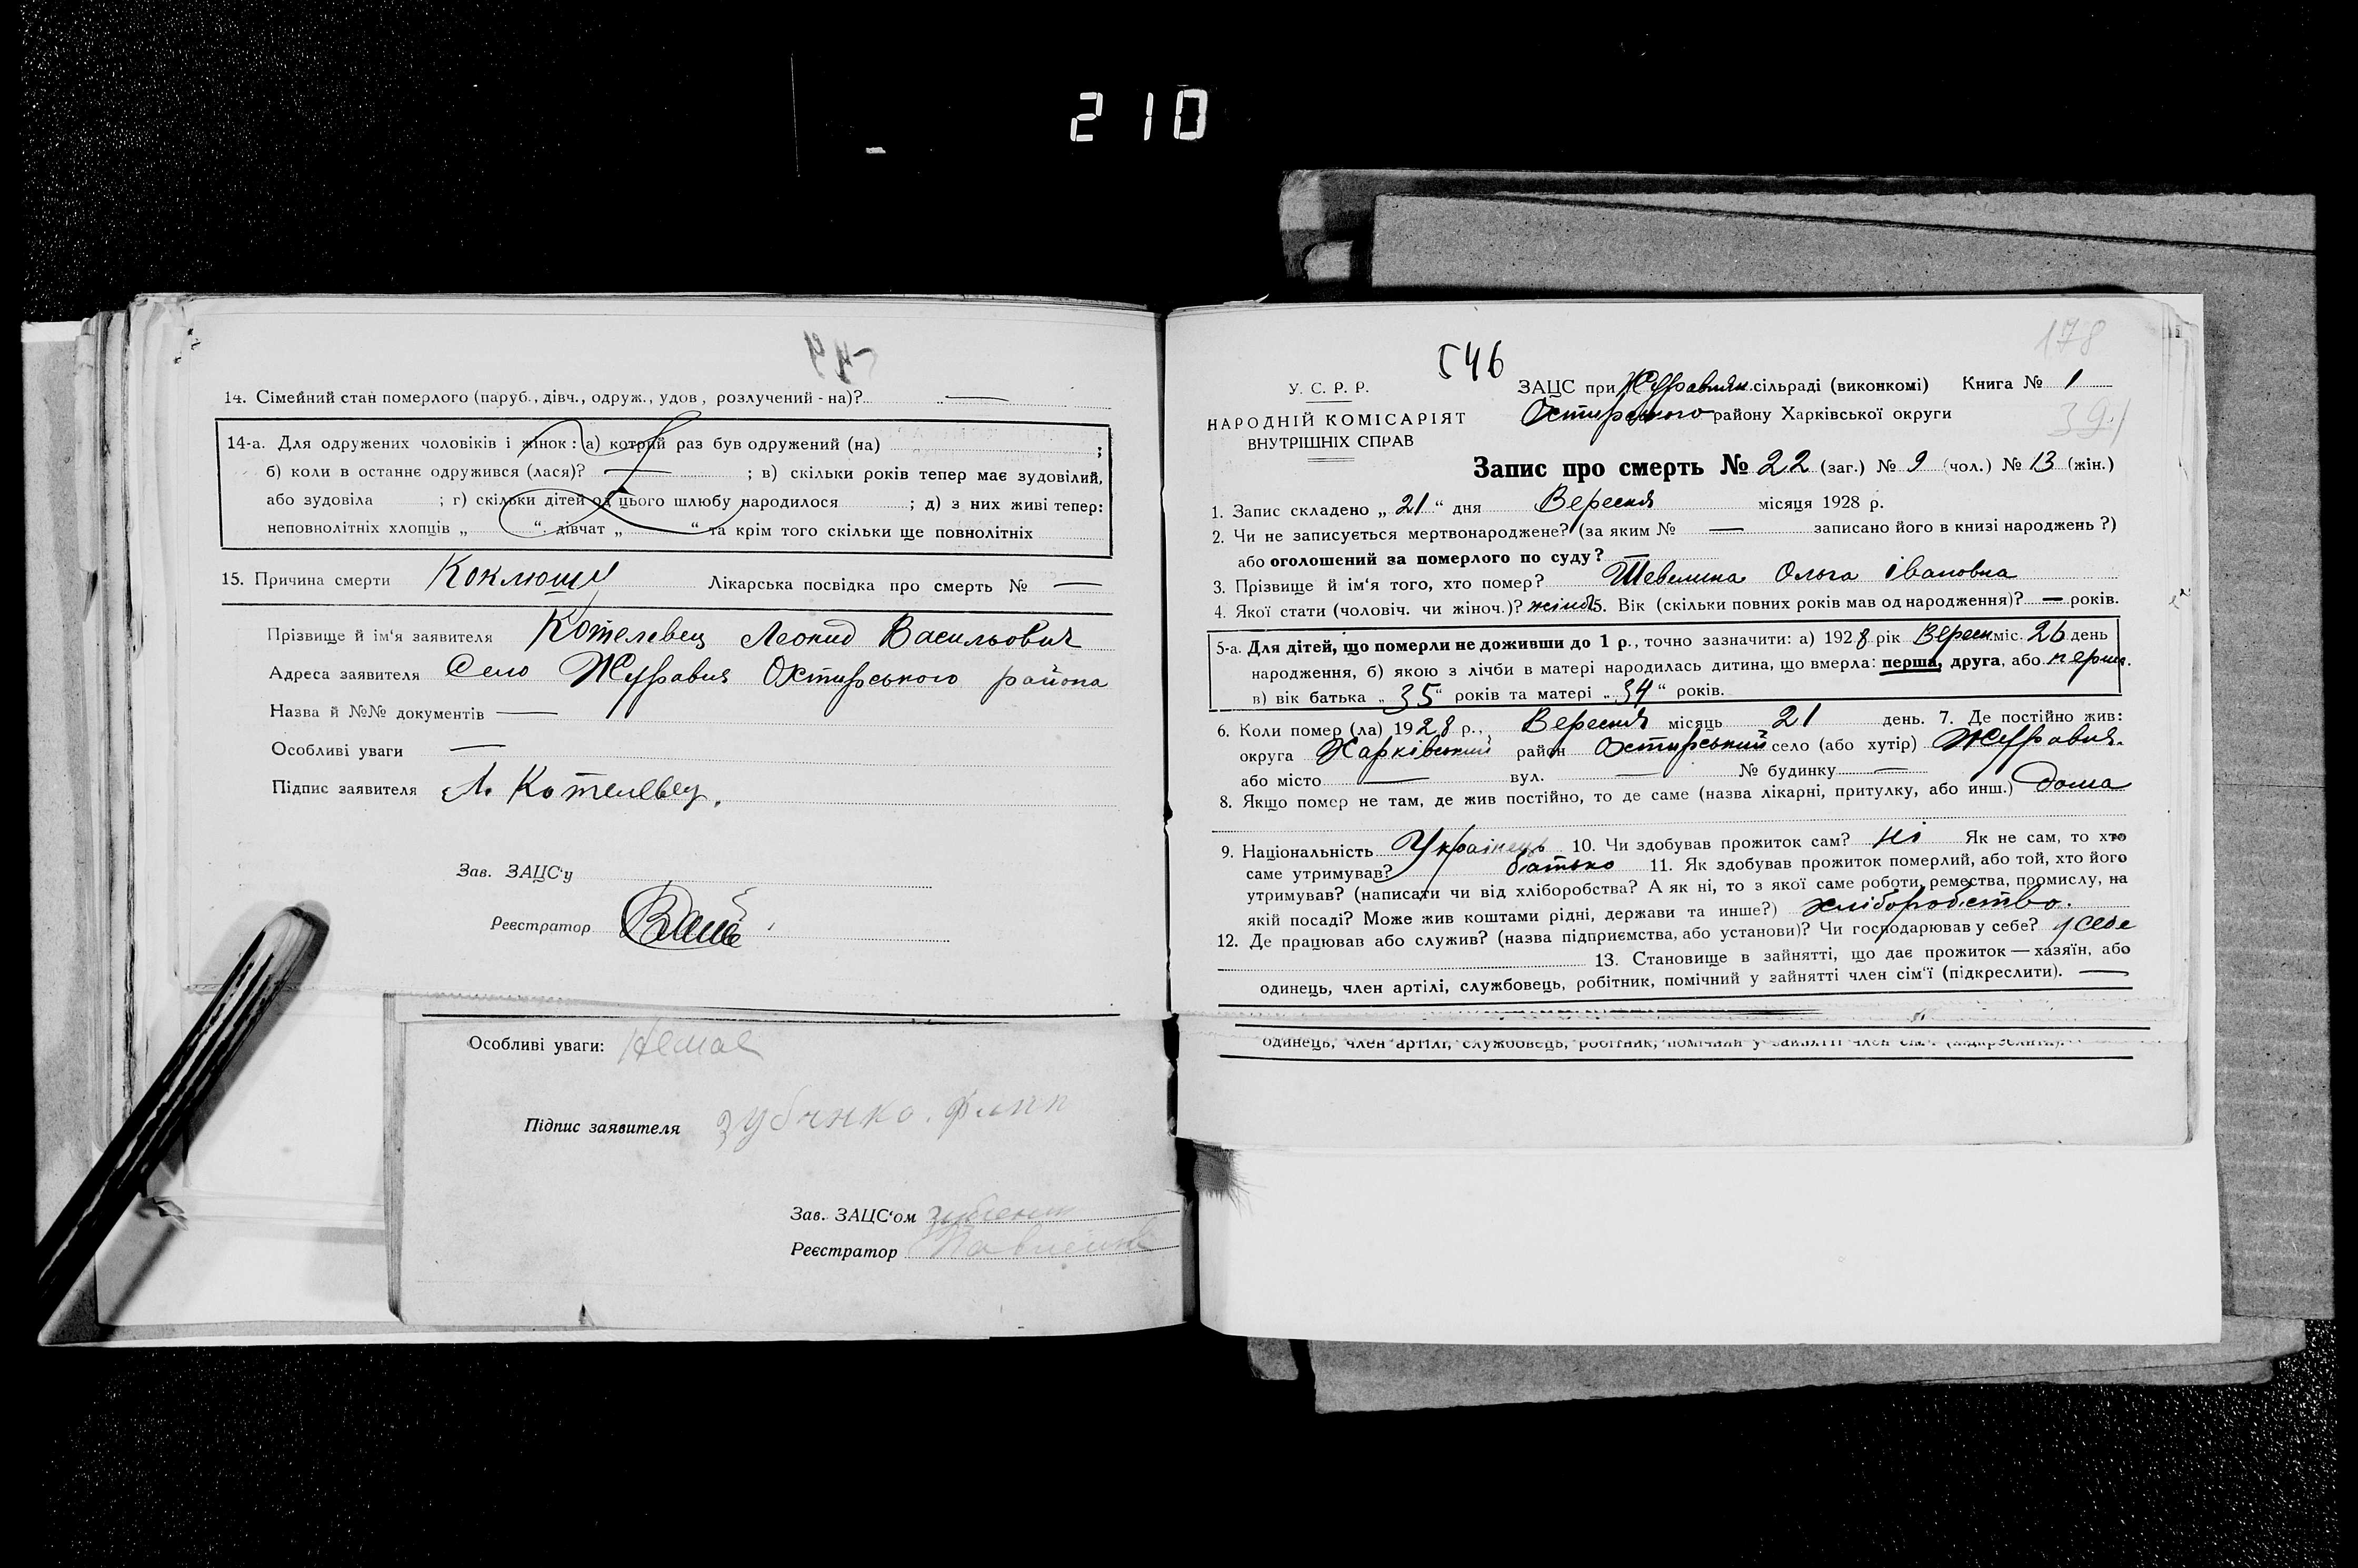 210
14. Сімейний стан померлого (паруб., дівч., одруж., удов, розлучений-на)? —
14-а. Для одружених чоловіків і жінок: а) котрий раз був одружений (на) ;
б) коли в останнє одружився (лася)? — ; в) скільки років тепер має зудовілий,
або зудовіла ; г) скільки дітей од цього шлюбу народилося ; д) з них живі тепер:
неповнолітніх хлопців „ “ дівчат „ “ та крім того скільки ще повнолітніх
15. Причина смерти Коклющ Лікарська посвідка про смерть № —
Прізвище й ім‘я заявителя Котелевец Леонид Васильович
Адреса заявителя Село Журавня Охтирського района
Назва й №№ документів —
Особливі уваги —
Підпис заявителя Л. Котелевец.
Зав. ЗАЦС‘у
Реєстратор
Особливі уваги: Немає
Підпис заявителя
Зав. ЗАЦС‘ом
Реєстратор
178
546
У. С. Р. Р.
НАРОДНІЙ КОМІСАРІЯТ
ВНУТРІШНІХ СПРАВ
ЗАЦС при Журавлян. сільраді (виконкомі) Книга № 1
Охтирського району Харківської округи
391
Запис про смерть № 22 (заг.) № 9 (чол.) № 13 (жін.)
1. Запис складено „ 21 “ дня Вересня місяця 1928 р.
2. Чи не записується мертвонароджене? (за яким № — записано його в книзі народжень?)
або оголошений за померлого по суду? —
3. Прізвище й ім‘я того, хто помер? Шевелина Ольга івановна
4. Якої стати (чоловіч. чи жіноч.)? жіноч 5. Вік (скільки повних років мав од народження)? — років.
5-а. Для дітей, що померли не доживши до 1 р., точно зазначити: а) 1928 рік Вересн міс. 26 день
народження, б) якою з лічби в матері народилась дитина, що вмерла: перша, друга, або перша.
в) вік батька „ 35 “ років та матері „ 34 “ років.
6. Коли помер (ла) 1928 р., Вересня місяць 21 день. 7. Де постійно жив:
округа Харківський район Охтирський село (або хутір) Журавня.
або місто — вул. — № будинку —
8. Якщо помер не там, де жив постійно, то де саме (назва лікарні, притулку, або инш.) дома
9. Національність Українець 10. Чи здобував прожиток сам? Ні Як не сам, то хто
саме утримував? батько 11. Як здобував прожиток померлий, або той, хто його
утримував? (написати чи від хліборобства? А як ні, то з якої саме роботи, ремества, промислу, на
якій посаді? Може жив коштами рідні, держави та инше?) хліборобство.
12. Де працював або служив? (назва підприємства, або установи)? Чи господарював у себе? у себе
13. Становище в зайнятті, що дає прожиток — хазяїн, або
одинець, член артілі, службовець, робітник, помічний у зайнятті член сім‘ї (підкреслити). —
одинець, член артілі, службовець, робітник, помічний у зайнятті член сім‘ї (підкреслити).